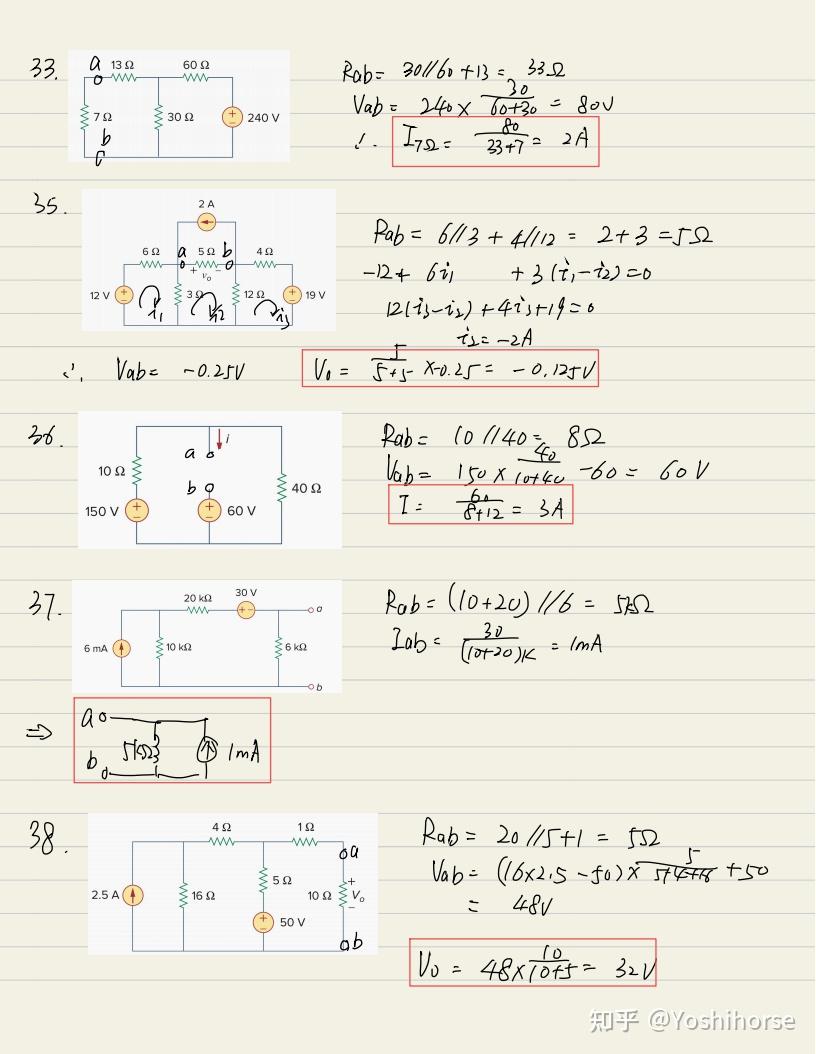 33.
a
13 Ω 60 Ω
7 Ω 30 Ω 240 V
b
Rab = 30//60 + 13 = 33Ω
Vab = 240 × 30/(60+30) = 80V
∴ I7Ω = 80/(33+7) = 2A
35.
2 A
6 Ω a 5 Ω b 4 Ω
+ v₀ −
12 V 3 Ω 12 Ω 19 V
i₁ i₂ i₃
Rab = 6//3 + 4//12 = 2+3 = 5Ω
-12 + 6i₁ + 3(i₁-i₂) = 0
12(i₃-i₂) + 4i₃ + 19 = 0
i₂ = -2A
∴ Vab = -0.25V
V₀ = 5/(5+5) × -0.25 = -0.125V
36.
i
a
10 Ω
b 40 Ω
150 V 60 V
Rab = 10//40 = 8Ω
Vab = 150 × 40/(10+40) - 60 = 60V
I = 60/(8+12) = 3A
37.
20 kΩ 30 V
a
6 mA 10 kΩ 6 kΩ
b
Rab = (10+20)//6 = 5kΩ
Iab = 30/(10+20)K = 1mA
⇒ a
5kΩ 1mA
b
38.
4 Ω 1 Ω
a
2.5 A 16 Ω 5 Ω 10 Ω + V₀ −
50 V
ab
Rab = 20//5 + 1 = 5Ω
Vab = (16×2.5 - 50) × 5/(5+4+16) + 50
= 48V
V₀ = 48 × 10/(10+5) = 32V
知乎 @Yoshihorse